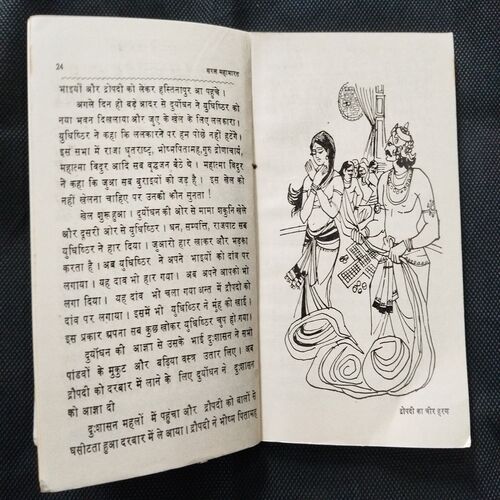 24
सरल महाभारत
भाइयों और द्रौपदी को लेकर हस्तिनापुर आ पहुंचे ।
अगले दिन ही बड़े आदर से दुर्योधन ने युधिष्ठिर को
नया भवन दिखलाया और जुए के खेल के लिए ललकारा ।
युधिष्ठिर ने कहा कि ललकारने पर हम पीछे नहीं हटेंगे ।
इस सभा में राजा धृतराष्ट्र, भीष्मपितामह, गुरु द्रोणाचार्य,
महात्मा विदुर आदि सब वृद्धजन बैठे थे । महात्मा विदुर
ने कहा कि जुआ सब बुराइयों की जड़ है । इस खेल को
नहीं खेलना चाहिए पर उनकी कौन सुनता !
खेल शुरू हुआ । दुर्योधन की ओर से मामा शकुनि खेले
और दूसरी ओर से युधिष्ठिर । धन, सम्पत्ति, राजपाट सब
युधिष्ठिर ने हार दिया । जुआरी हार खाकर और भड़का
करता है । अब युधिष्ठिर ने अपने भाइयों को दांव पर
लगाया । यह दाव भी हार गया । अब अपने आपको भी
लगा दिया । यह दांव भी चला गया अन्त में द्रौपदी को
दांव पर लगाया । इसमें भी युधिष्ठिर ने मुंह की खाई ।
इस प्रकार अपना सब कुछ खोकर युधिष्ठिर चुप हो गया ।
दुर्योधन की आज्ञा से उसके भाई दुःशासन ने सभी
पांडवों के मुकुट और बढ़िया वस्त्र उतार लिए । अब
द्रौपदी को दरबार में लाने के लिए दुर्योधन ने दुःशासन
को आज्ञा दी
दुःशासन महलों में पहुंचा और द्रौपदी को बालों से
घसीटता हुआ दरबार में ले आया । द्रौपदी ने भीष्म पितामह
द्रौपदी का चीर हरण